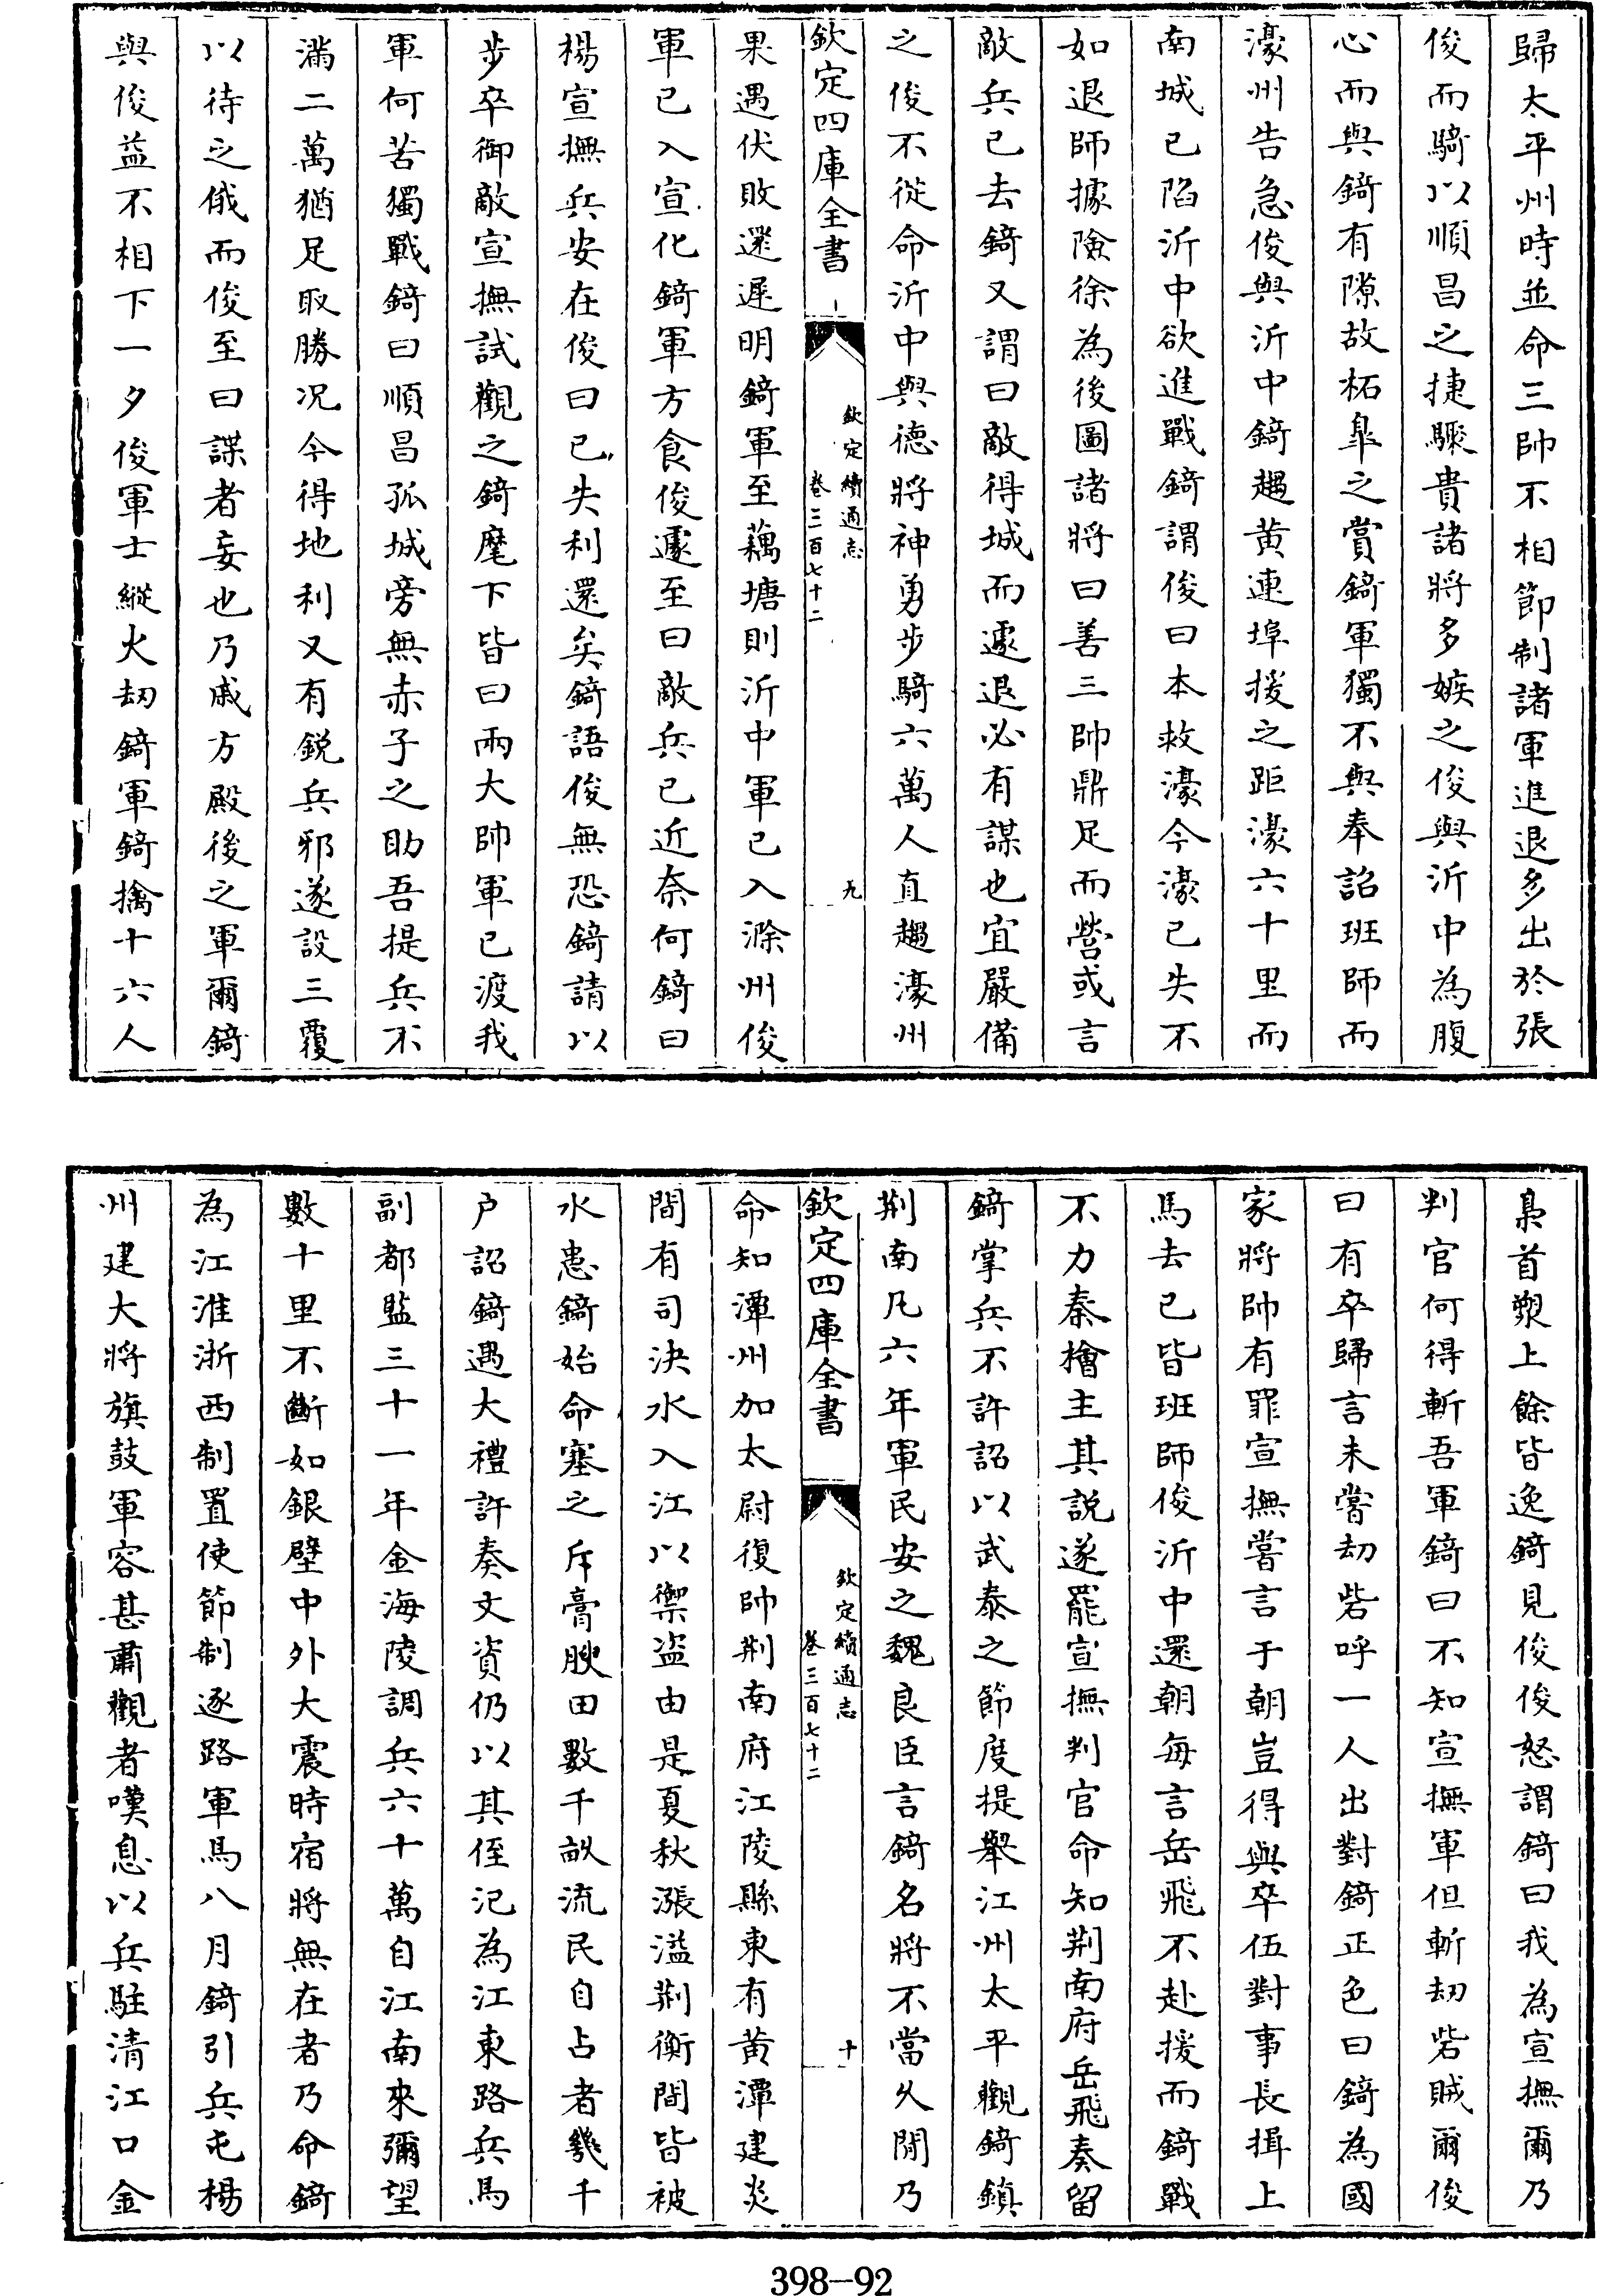 歸太平州時並命三帥不相節制諸軍進退多出於張
俊而騎以順昌之捷驟貴諸將多嫉之俊與沂中為腹
心而與錡有隙故柘臯之賞錡軍獨不與奉詔班師而
濠州告急俊與沂中錡趨黄連埠援之距濠六十里而
南城已陷沂中欲進戰錡謂俊曰本救濠今濠已失不
如退師據險徐為後圖諸將曰善三帥鼎足而營或言
敵兵已去錡又謂曰敵得城而遽退必有謀也宜嚴備
之俊不從命沂中與德將神勇步騎六萬人直趨濠州
欽定四庫全書
欽定續通志
卷三百七十二
九
果遇伏敗還遲明錡軍至藕塘則沂中軍已入滁州俊
軍已入宣化錡軍方食俊遽至曰敵兵已近奈何錡曰
楊宣撫兵安在俊曰已失利還矣錡語俊無恐錡請以
步卒御敵宣撫試觀之錡麾下皆曰兩大帥軍已渡我
軍何苦獨戰錡曰順昌孤城旁無赤子之助吾提兵不
滿二萬猶足取勝况今得地利又有鋭兵邪遂設三覆
以待之俄而俊至曰諜者妄也乃戚方殿後之軍爾錡
與俊益不相下一夕俊軍士縱火刧錡軍錡擒十六人
梟首槊上餘皆逸錡見俊俊怒謂錡曰我為宣撫爾乃
判官何得斬吾軍錡曰不知宣撫軍但斬刧砦賊爾俊
曰有卒歸言未嘗刧砦呼一人出對錡正色曰錡為國
家將帥有罪宣撫嘗言于朝豈得與卒伍對事長揖上
馬去已皆班師俊沂中還朝每言岳飛不赴援而錡戰
不力秦檜主其説遂罷宣撫判官命知荆南府岳飛奏留
錡掌兵不許詔以武泰之節度提舉江州太平觀錡鎮
荆南凡六年軍民安之魏良臣言錡名將不當久閒乃
欽定四庫全書
欽定續通志
卷三百七十二
十
命知潭州加太尉復帥荆南府江陵縣東有黄潭建炎
間有司決水入江以禦盜由是夏秋漲溢荆衡間皆被
水患錡始命塞之斥膏腴田數千畝流民自占者幾千
户詔錡遇大禮許奏文資仍以其侄汜為江東路兵馬
副都監三十一年金海陵調兵六十萬自江南來彌望
數十里不斷如銀壁中外大震時宿將無在者乃命錡
為江淮浙西制置使節制逐路軍馬八月錡引兵屯楊
州建大將旗鼓軍容甚肅觀者嘆息以兵駐清江口金
398-92